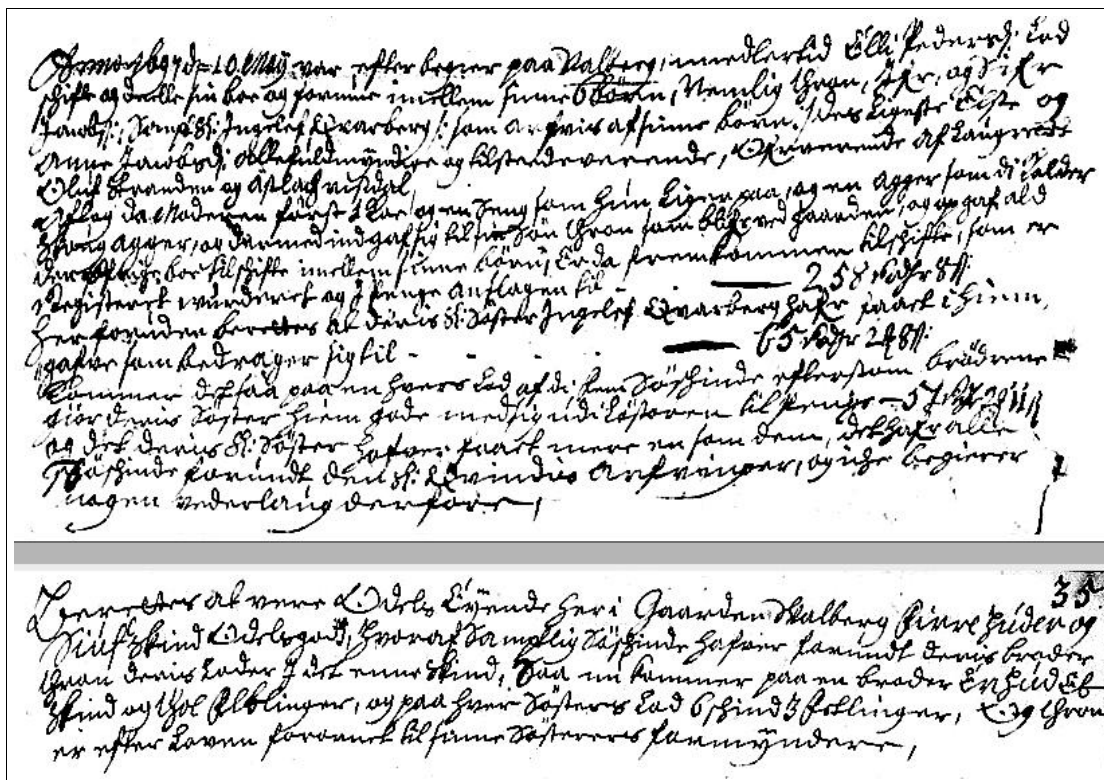 Anno 1697 d= 10 Maÿ var efter begier paa Walberg, imedlertid Elli Pedersd: Lod
schifte og deelle sin boe og formue imellem sinne 6 börn, Nemlig thron, Ifr, og Sifr
Jacobs:, Sampt Sl: Ingelef Qvarberg /: som arfvis af sinne börn :/ des Ligeste Elste og
Anne Jacobsd: Alle fuldmÿndige og tilstedeverende, Ofververende af Laugrett
Oluf Stranden og Aslach
Oftog da Moderen först 1 Koe og en Seng som hun Liger paa, og en Agger som di Kalder
Agger, og dermed indgaf sig til sin Sön thron som blifr ved gaarden, og opgaf ald
den öfrige boe til schifte imellem sinne börn, Er da fremkommen til schifte, som er
Registerit wurderit og J Penge Anslagen til — 258 Rdlr 8 s:
Her foruden berettes at deris Sl: Söster Ingelef Qvarberg hafr faaet i hiem,
gafve som bedrager sig til - - - - — 65 Rdlr 24 s:
Kommer det saa paa en hvers Lod af di fem Söschinde efftersom brödrene
giör deris Söster hiem gode med sig udi Löszören til Penge — 57
og det deris Sl: Söster hafver faaet mere en som dem, det hafr alle
Söschinde forundt den Sl: Qvindes Arfvinger, og iche begierer
nogen vederlaug derfore,
35
Berettes at vere Odels Eÿende her i Gaarden Walberg Firre huder og
Siuf skind Odelsgods, hvoraf Samptlig Söschinde hafver forundt deris broder
thron deris Loder J det enne Skind, Saa nu kommer paa en broder En hud Et
Skind og thol Felinger, og paa hver Sösters Lod 6 schind 3 Felinger, Og thron
er efter Loven forornet til sinne Sösterers formÿndere,